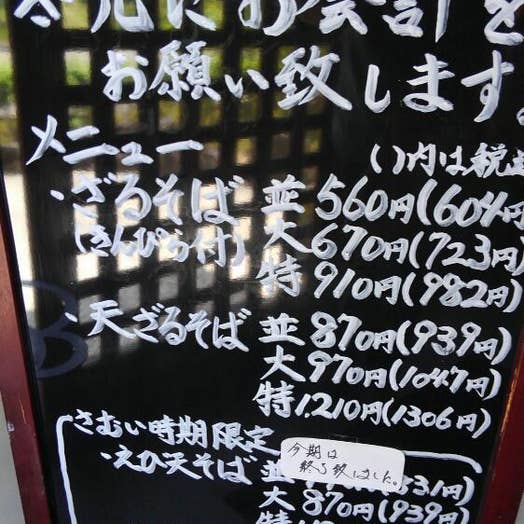 先にお会計を
お願い致します。
メニュー
( )内は税込
・ざるそば 並 560円(604円
(きんぴら付) 大 670円(723円
特 910円(982円
・天ざるそば 並 870円(939円)
大 970円(1047円)
特 1,210円(1306円)
さむい時期限定
今期は
終了致しました。
・えび天そば 並 31円)
大 870円(939円)
特